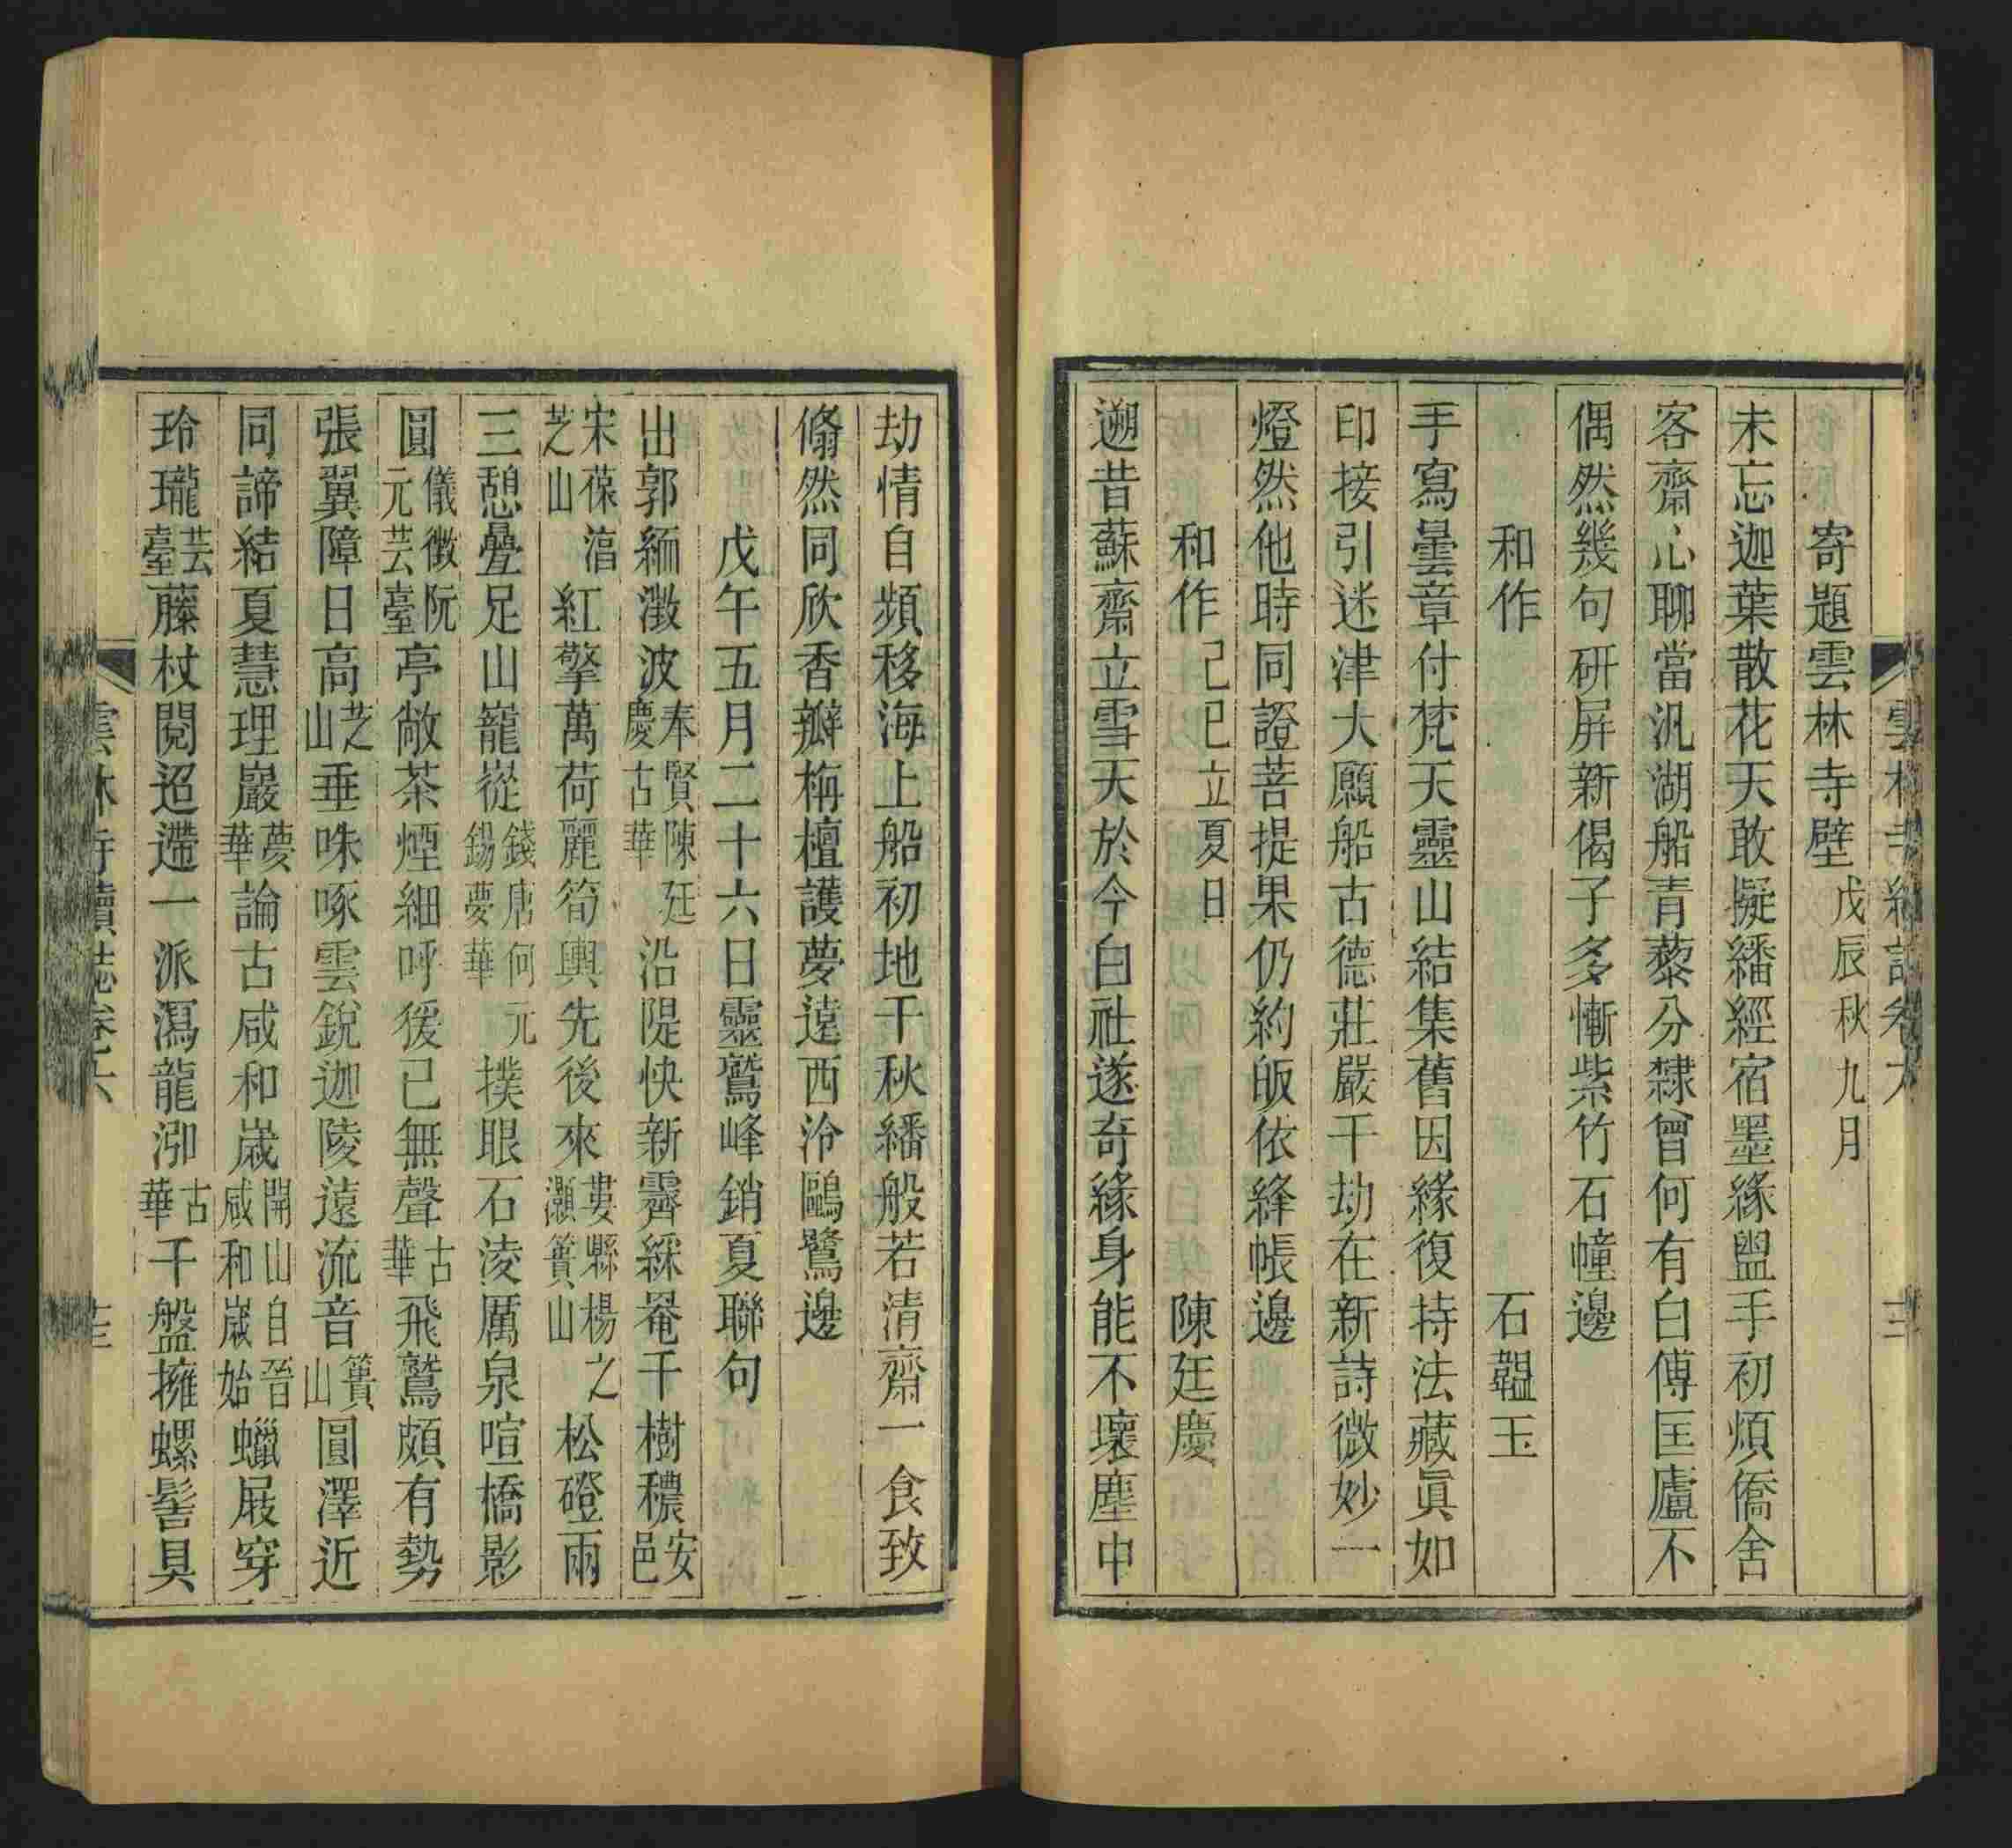 寄題雲林寺壁戊辰秋九月
未忘迦葉散花天敢擬繙經宿墨緣盥手初煩僑舍
客齋心聊當汎湖船青藜分隸曾何有白傅匡廬不
偶然幾句研屏新偈子多慚紫竹石幢邊
和作 石韞玉
手寫曇章付梵天靈山結集舊因緣復持法藏眞如
印接引迷津大願船古德莊嚴千劫在新詩微妙一
燈然他時同證菩提果仍約皈依絳帳邊
和作己巳立夏日 陳廷慶
遡昔蘇齋立雪天於今白社遂奇緣身能不壞塵中
劫情自頻移海上船初地千秋繙般若清齋一食致
翛然同欣香瓣栴檀護夢遠西泠鷗鷺邊
戊午五月二十六日靈鷲峰銷夏聯句
出郭緬澂波奉賢陳廷慶古華沿隄快新霽綵菴千樹穠安邑
宋葆淳芝山紅擎萬荷麗筍輿先後來婁縣楊之灝簣山松磴兩
三憩疊足山巃嵸錢唐何元錫夢華撲眼石淩厲泉喧橋影
圓儀徵阮元芸臺亭敞茶煙細呼猨已無聲古華飛鷲頗有勢
張翼障日高芝山垂咮啄雲銳迦陵遠流音簣山圓澤近
同諦結夏慧理巖夢華論古咸和歲開山自晉咸和歲始蠟屐穿
玲瓏芸臺藤杖閱迢遰一派瀉龍泖古華千盤擁螺髻具
雲林寺續誌卷六